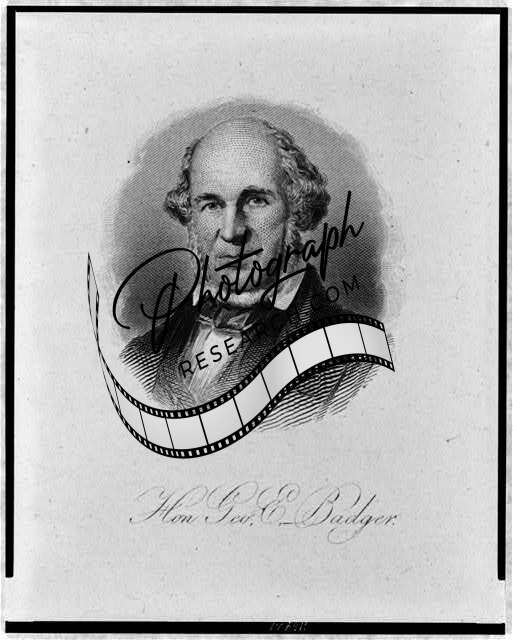 Photograph
RESEARCH.COM
Hon Geo. E. Badger.